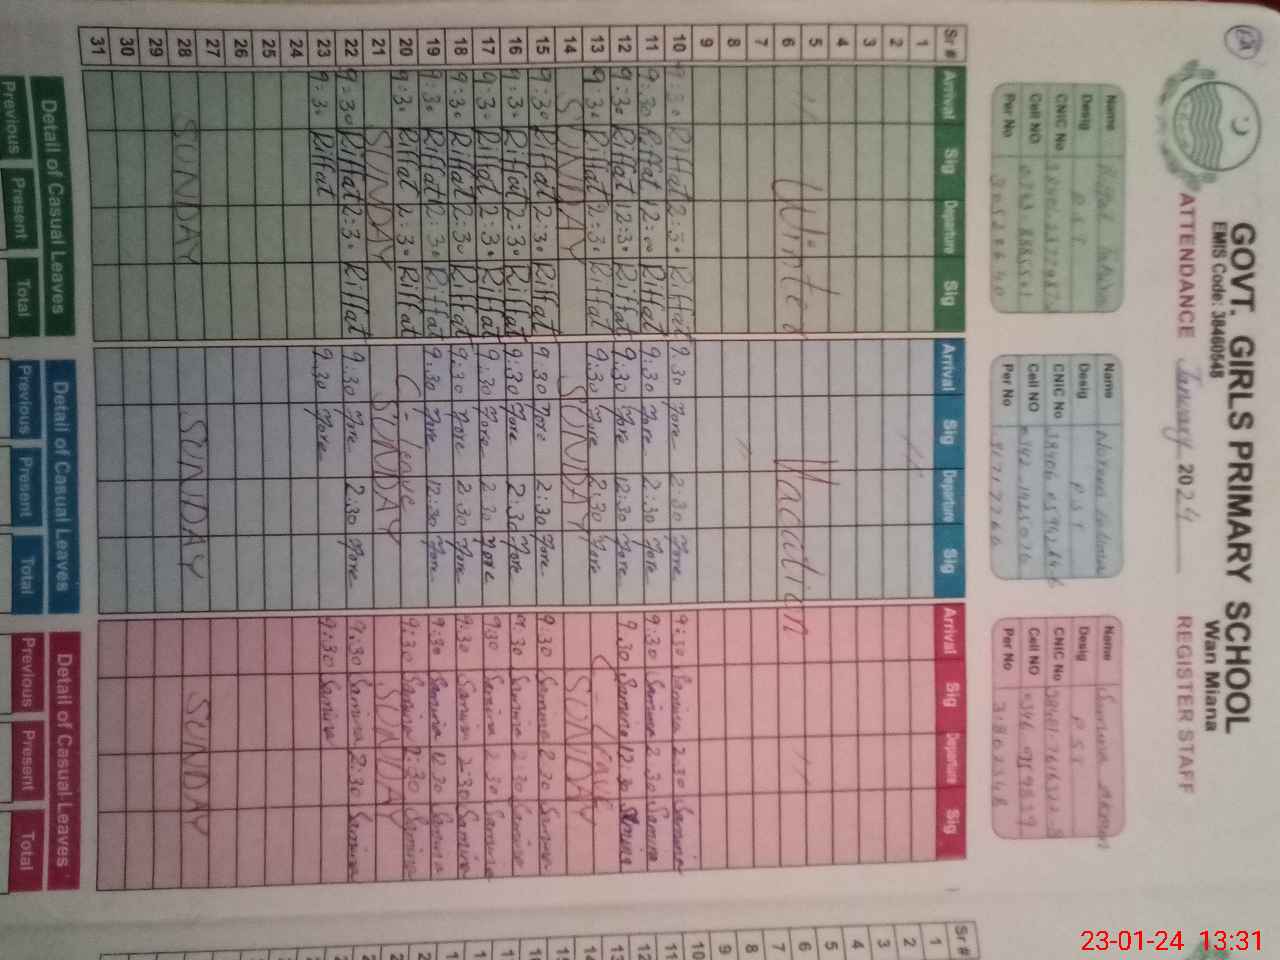 GOVT. GIRLS PRIMARY SCHOOL
EMIS Code: 38460548
Wan Miana
ATTENDANCE January 2024 REGISTER STAFF
Name
Desig P.S.T
CNIC No
Cell NO
Per No
Name
Desig P.S.T
CNIC No
Cell NO
Per No
Name
Desig P.S.T
CNIC No
Cell NO
Per No
Sr # Arrival Sig Departure Sig Arrival Sig Departure Sig Arrival Sig Departure Sig
1
2
3
4
5
6 Winter Vacation
7
8
9
10 9:30 Riffat 2:30 Riffat 9:30 Nore 2:30 Nore 9:30 Samina 2:30 Samina
11 9:30 Riffat 12:00 Riffat 9:30 Nore 2:30 Nore 9:30 Samina 2:30 Samina
12 9:30 Riffat 12:30 Riffat 9:30 Nore 12:30 Nore 9:30 Samina 12:30 Samina
13 9:30 Riffat 2:30 Riffat 9:30 Nore 2:30 Nore C-leave
14 SUNDAY SUNDAY SUNDAY
15 9:30 Riffat 2:30 Riffat 9:30 Nore 2:30 Nore 9:30 Samina 2:30 Samina
16 9:30 Riffat 2:30 Riffat 9:30 Nore 2:30 Nore 9:30 Samina 2:30 Samina
17 9:30 Riffat 2:30 Riffat 9:30 Nore 2:30 Nore 9:30 Samina 2:30 Samina
18 9:30 Riffat 2:30 Riffat 9:30 Nore 2:30 Nore 9:30 Samina 2:30 Samina
19 9:30 Riffat 2:30 Riffat 9:30 Nore 12:30 Nore 9:30 Samina 12:30 Samina
20 9:30 Riffat 2:30 Riffat C leave 9:30 Samina 2:30 Samina
21 SUNDAY SUNDAY SUNDAY
22 9:30 Riffat 2:30 Riffat 9:30 Nore 2:30 Nore 9:30 Samina 2:30 Samina
23 9:30 Riffat 9:30 Nore 9:30 Samina
24
25
26
27
28 SUNDAY SUNDAY SUNDAY
29
30
31
Detail of Casual Leaves Detail of Casual Leaves Detail of Casual Leaves
Previous Present Total Previous Present Total Previous Present Total
Sr #
1
2
3
4
5
6
7
8
9
10
23-01-24 13:31